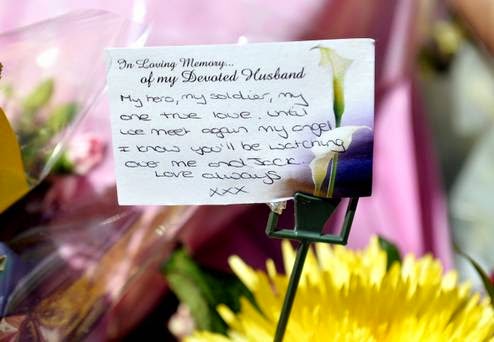 In Loving Memory...
of my Devoted Husband
My hero, my soldier, my
one true love. Until
we meet again my angel
I know you'll be watching
over me and Jack.
Love always
xxx